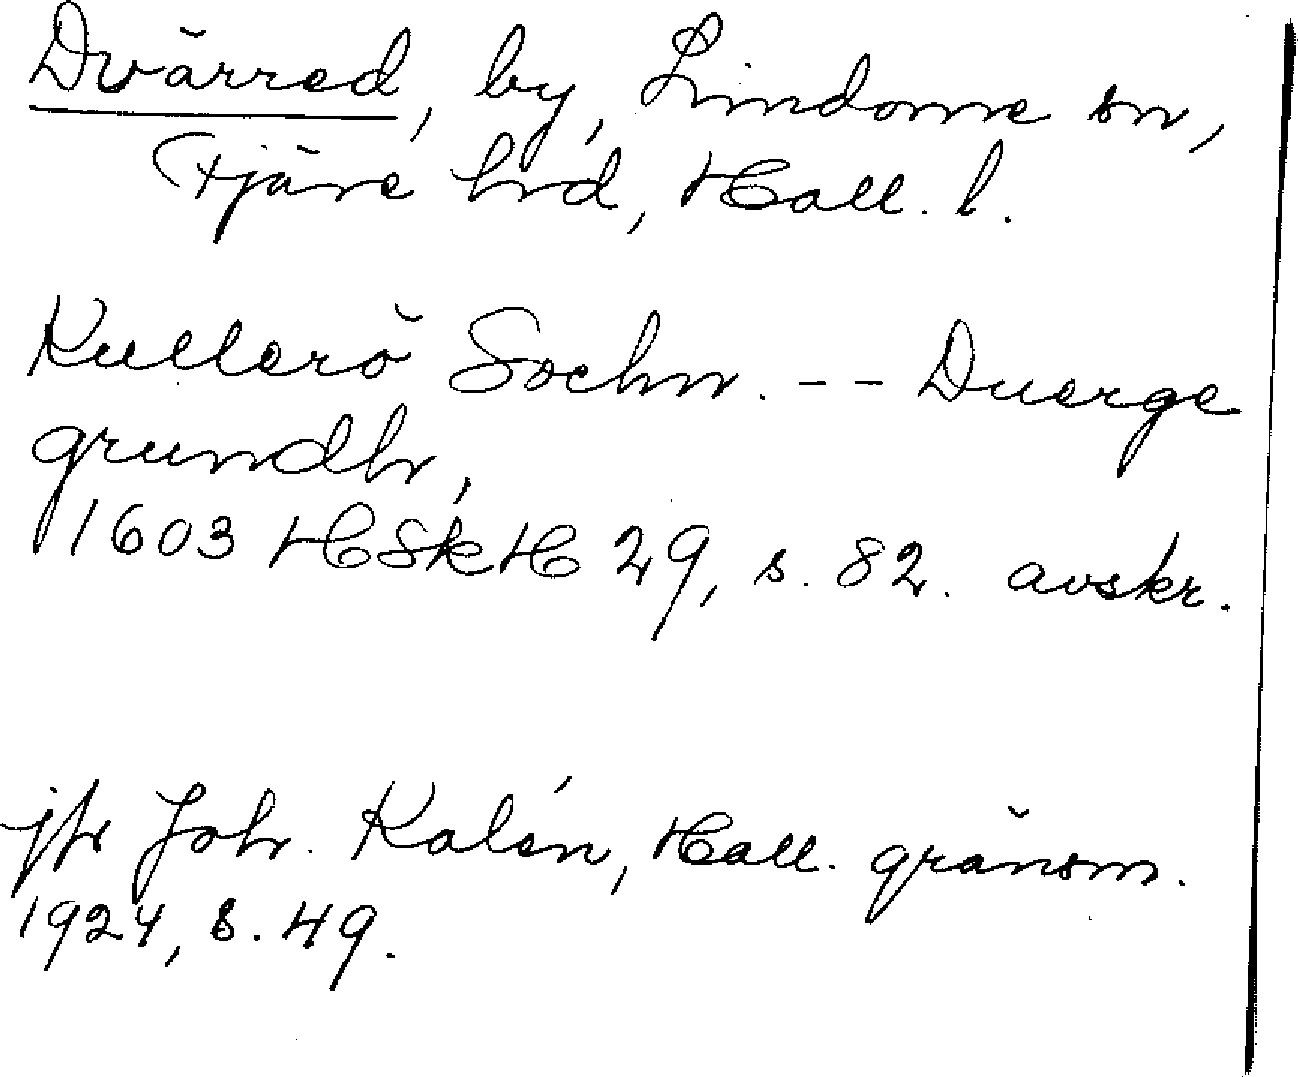 Dvärred, by, Lindome sn,
Fjäre hrd, Hall. l.
Kullerö Sochn. -- Duerge
grundh,
1603 HSkH 29, s. 82. avskr.
jfr Joh. Kalén, Hall. gränsm.
1924, s. 49.